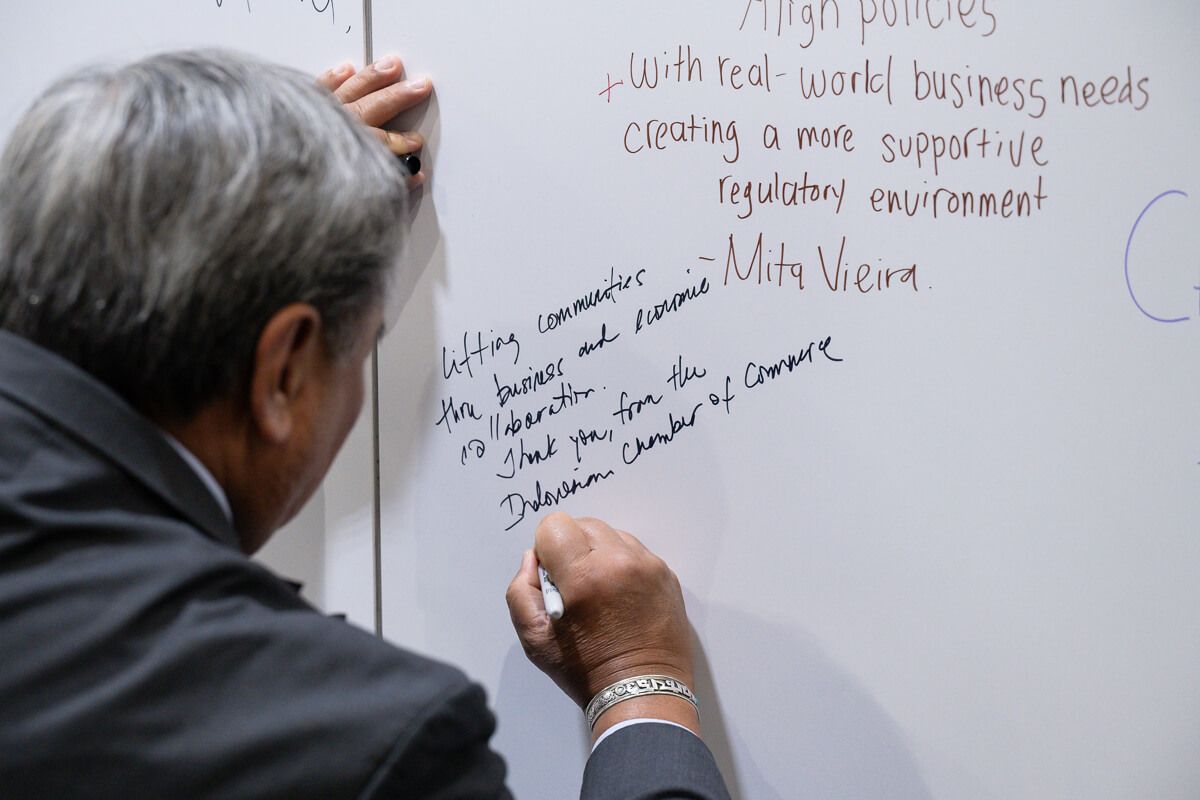 Align policies
+ with real-world business needs
creating a more supportive
regulatory environment
- Mita Vieira.
Lifting communities
thru business and economic
collaboration.
Thank you, from the
Indonesian Chamber of Commerce